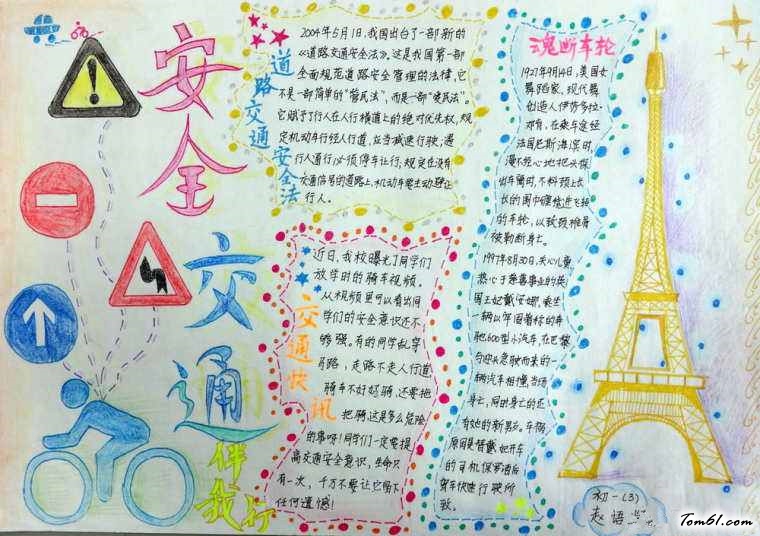 安全
交通
伴我行
道路交通安全法
2004年5月1日,我国出台了一部新的
《道路交通安全法》。这是我国第一部
全面规范道路安全管理的法律,它
不是一部简单的“管民法”,而是一部“爱民法”。
它赋予了行人在人行横道上的绝对优先权,规
定机动车行经人行道,应当减速行驶,遇
行人通行必须停车让行,规定在没有
交通信号的道路上,机动车要主动避让
行人。
交通快讯
近日,我校曝光了同学们
放学时的骑车视频。
从视频里可以看出同
学们的安全意识还不
够强。有的同学乱穿
马路,走路不走人行道
骑车不好好骑,还要把
把骑,这是多么危险
的事呀!同学们一定要提
高交通安全意识,生命只
有一次,千万不要让它留下
任何遗憾!
魂断车轮
1927年9月14日,美国女
舞蹈家、现代舞
创造人伊莎多拉·
邓肯,在乘车途经
法国尼斯海滨时,
漫不经心地把头探
出车窗时,不料颈上长
长的围巾缠绕进飞转
的车轮,以致颈椎骨
被勒断身亡。
1997年8月30日,关心儿童,
热心于慈善事业的英
国王妃戴安娜,乘坐
一辆以年旧着称的奔
驰600型小汽车,在巴黎
与迎头急驶而来的一
辆汽车相撞,当场
身亡,同时身亡的还
有她的新男友。车祸
原因是替戴妃开车
的司机保罗酒后
驾车快速行驶所
致。
初一(3)
赵语
Tom61.com